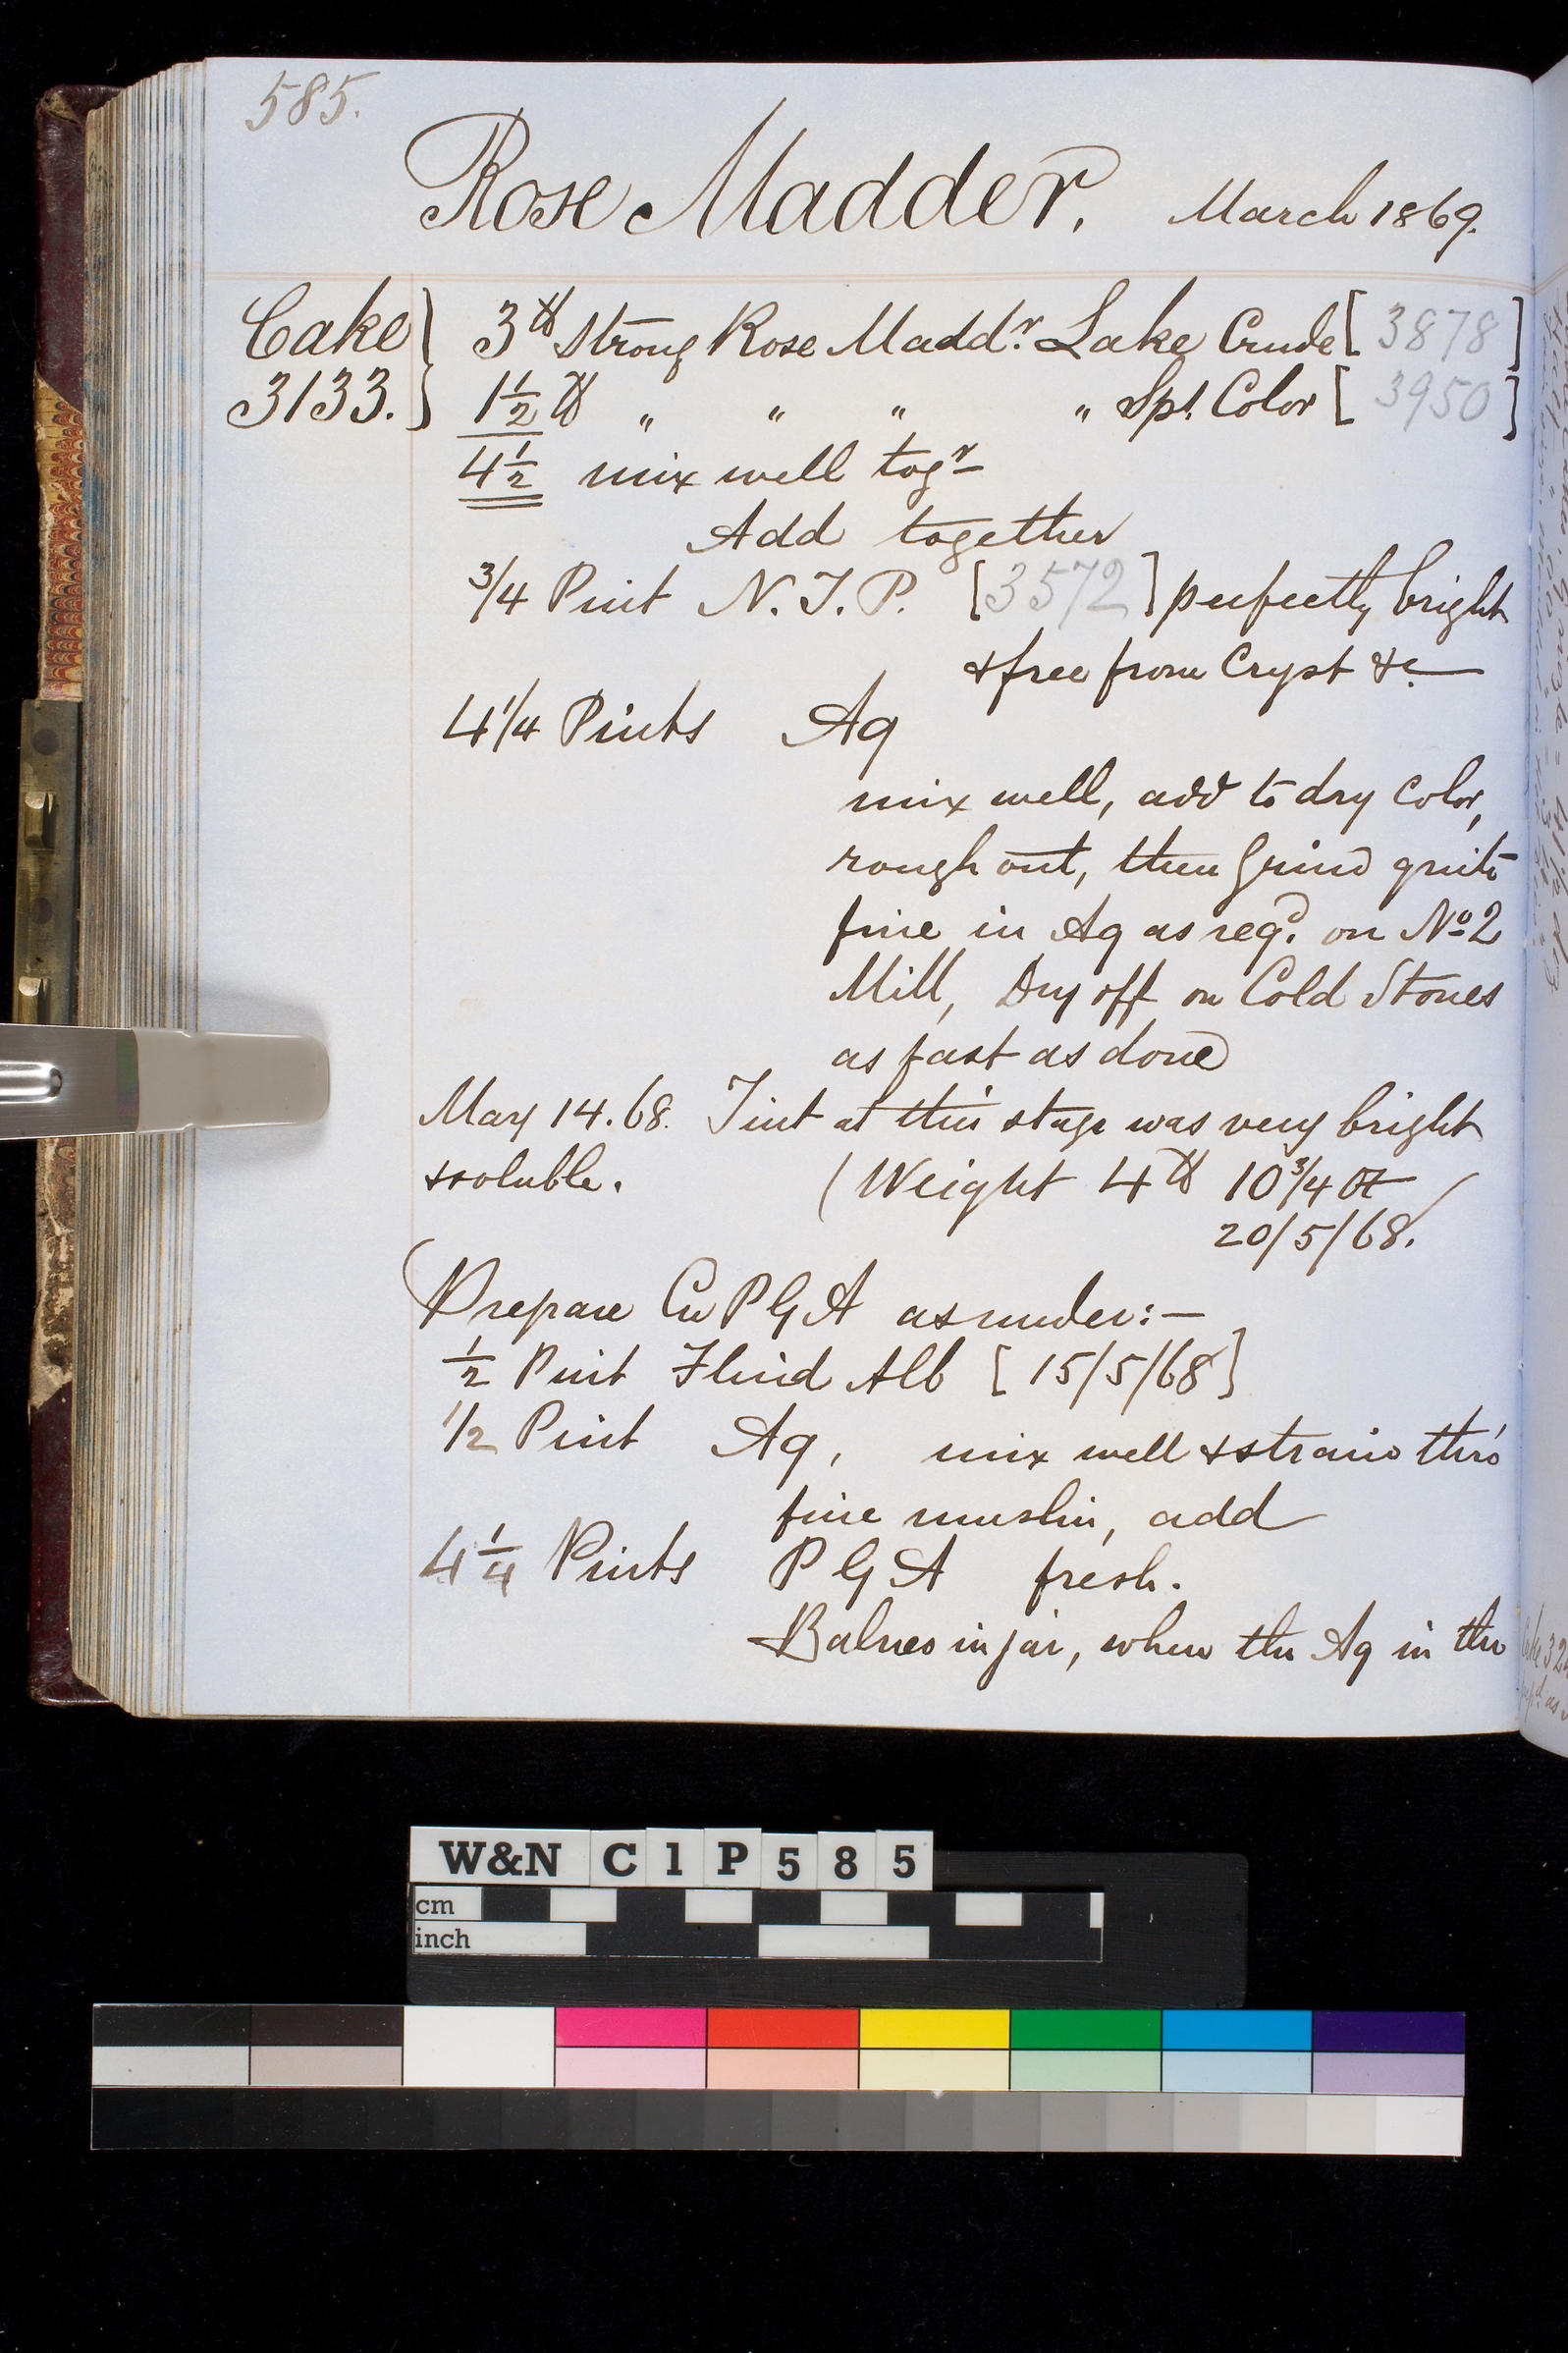 585.
Rose Madder. March 1869.
Cake 3133. } 3 ℔ Strong Rose Maddr. Lake Crude [3878]
1½ ℔ " " " " Spl. Color [3950]
4½ mix well togr
Add together
3/4 Pint N. J. P. [3572] perfectly bright
& free from Cryst &c.
4 1/4 Pints Aq
mix well, add to dry Color,
rough out, then Grind quite
fine in Aq as reqd. on No 2
Mill, Dry off on Cold Stones
as fast as done
May 14. 68. Tint at this stage was very bright
& soluble. (Weight 4 ℔ 10 3/4 oz
20/5/68.)
Prepare Cu P G A as under:—
½ Pint Fluid Alb [15/5/68]
1/2 Pint Aq, mix well & strain thro'
fine muslin, add
4 ¼ Pints P G A fresh.
in jar, when the Aq in the
W&N C1P585
cm
inch